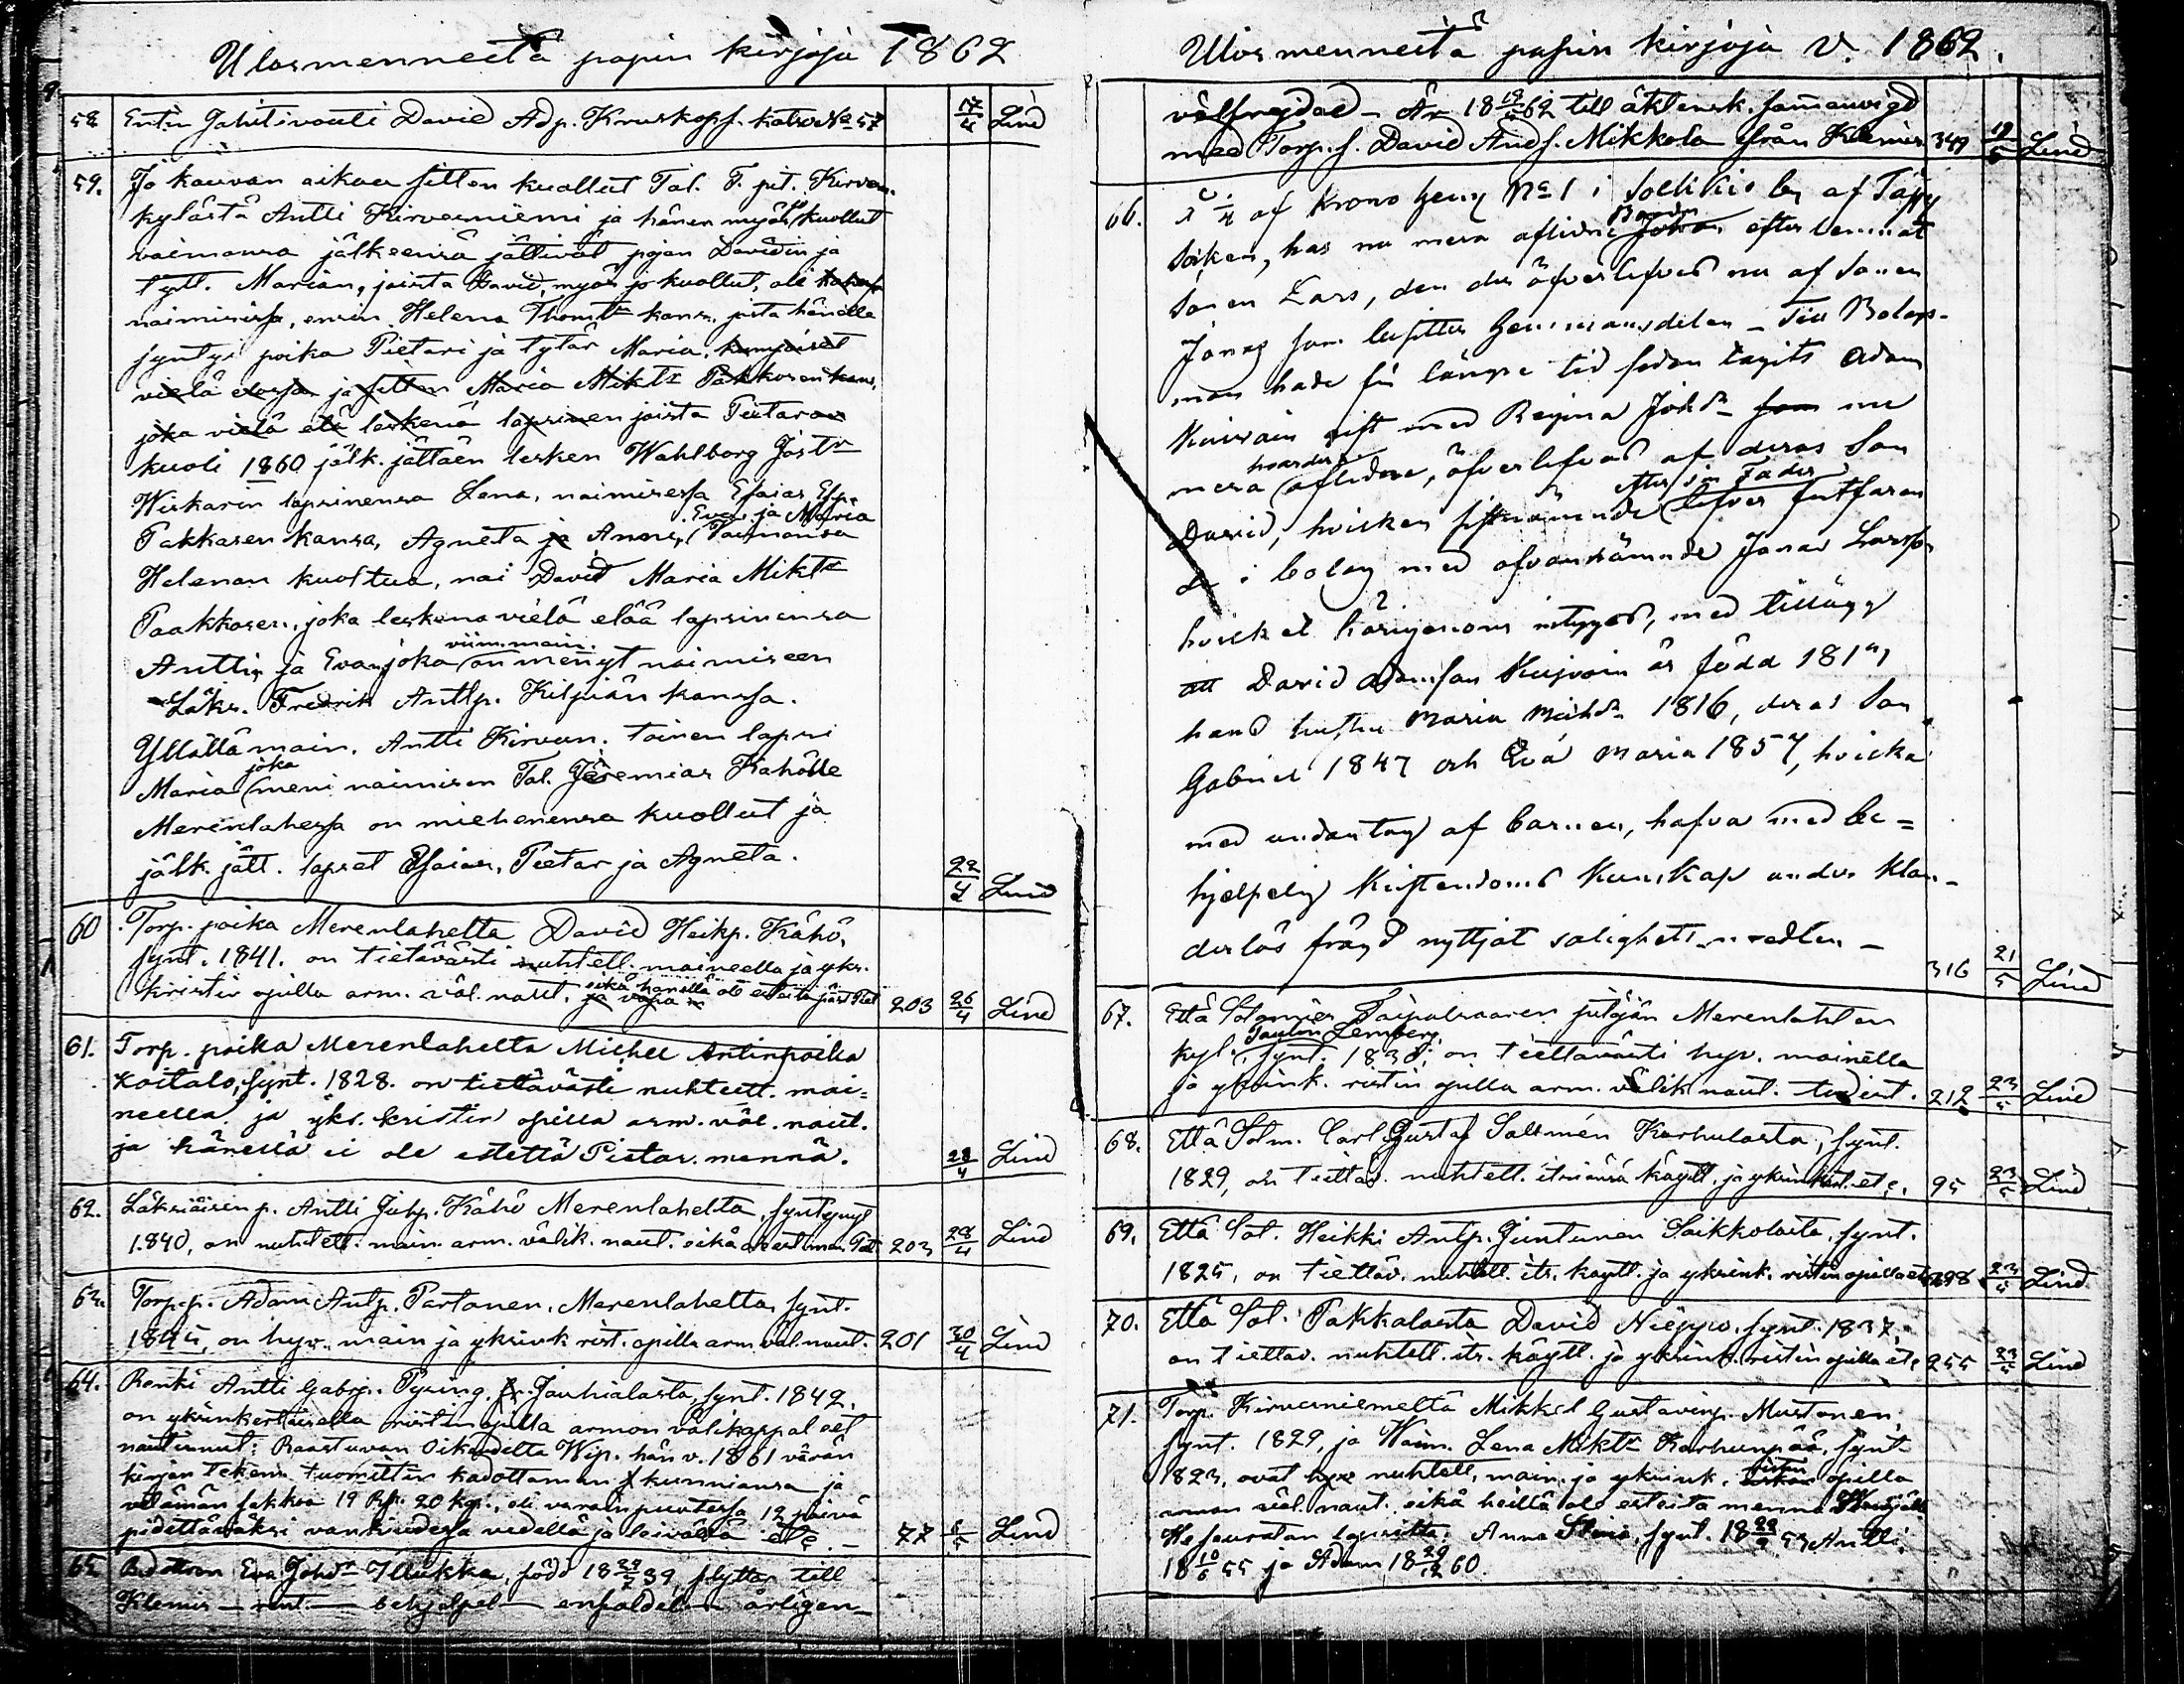 Ulosmenneitä papin kirjoja 1862
58 Ent:n Jahtivouti David Adp. Kruskopf. katso No 57 17/4 Lind
59. Jo kauvan aikaa sitten kuollut Tal. T. pit. Kirvem.
kylästä Antti Kirvesniemi ja hänen myös jo kuollut
vaimonsa jälkeensä jättivät pojan Davidin ja
tytt. Marian, joista David, myös jo kuollut, oli
naimisissa, ensin Helena Thomtr kansa, josta hänelle
syntyi poika Pietari ja tytär Maria,
vielä elossa ja sitten Maria Miktr Pakkosen kans.
joka vielä elä leskenä lapsinen joista Pietar
kuoli 1860 jälk. jättäen lesken Wahlborg Jöstr
Wiskarin lapsinensa Lena, naimisessa Esaias Esp.
Pakkasen kansa, Agneta ja Anna, Eva ja Maria Vaimonsa
Helenan kuoltua, nai David Maria Miktr
Paakkosen, joka leskenä vielä elää lapsinensa
Anttin ja Evan, joka viimmain. on menyt naimiseen
Läks. Fredrik Anttp. Kilpiän kanssa.
Yllällä main. Antti Kirvem. toinen lapsi
Maria joka meni naimisen Tal. Jeremias Kähölle
Merenlahessa on miehenensa kuollut ja
jälk. jätt. lapset Esaias, Pietar ja Agneta. 22/4 Lind
60 Torp. poika Merenlahelta David Heikp. Kähö,
synt. 1841. on tietävästi nuhtett. maineella ja yks.
kristin opilla arm. väl. naut. eikä hänellä ole esteitä 203 26/4 Lind
61. Torp. poika Merenlahelta Michel Antinpoika
Koitalo, synt. 1828. on tiettävästi nuhteett. mai=
neella ja yks. kristin opilla arm. väl. naut.
ja hänellä ei ole estettä Pietar. mennä. 28/4 Lind
62. Läksiäisen p. Antti Juhp. Kähö Merenlahelta, syntynyt
1840, on nuhtett. main. arm. välik. naut. eikä ole est. men. Piet 203 28/4 Lind
63. Torp.p. Adam Antp. Partanen, Merenlahelta, synt.
1845, on hyv. main ja yksink. rist. opilla arm. väl. naut. 201 30/4 Lind
64. Renki Antti Gabrp. Pysing. Jauhialasta, synt. 1842.
on yksinkertaisella ristin opilla armon välikappaleet
nautinnut: Raastuvan Oikeudelta Wip. hän v. 1861 väärän
kirjan tekem. tuomittin kadottaman kunniansa ja
vetämän sakkoa 19 Rp. 20 Kp., eli varain puutessa 12 päivä
pidettäväksi vankeudessa vedellä ja leivällä etc. – 77 6/5 Lind
65 Bd. dottren Eva Johdr Illukka, född 18 29/7 39, flyttar till
Klemis – behjelpel – enfaldel – årligen –
Ulosmenneitä papin kirjoja v. 1862.
välfrejdad – År 18 19/5 62 till äktensk. sammanvigd
med Torp. s. David Ands. Mikkola från Klemis 349 19/5 Lind
66. af Krono hem No 1 i Solkikis by af Täpy
Soken, har nu mera aflidne Bonden efterlemnat
Sonen Lars, den der öfverlefves nu af Sonen
Jonas som besitter hemmansdelen – Till Bolags-
man hade för längre tid sedan tagits Adam
Kuivain gift med Regina Johdr som nu
mera hvardera aflidne, öfverlefvas af deras Son
David, hvilken sistnämnde efter sin Fader lefver fortfaran
de i bolag med ofvannämnde Jonas Larsson
hvilket härigenom intygas, med tillägg
att David Adamsson Kuivain är född 1811
hans hustru Maria Michdr 1816, deras Son
Gabriel 1847 och Eva Maria 1857, hvilka
med undantag af barnen, hafva med be=
hjelpelig kristendoms kunskap under klan-
derlös frejd nyttjat salighets medlen – 316 21/5 Lind
67. Että Solamies Taipalsaaren pitäjän Merenlahden
kyl. Paulus Lemberg, synt. 1838, on tiettävästi hyv. mainella
ja yksink. ristin opilla arm. välik naut. todist. 212 23/5 Lind
68. Että Solm. Carl Gustaf Sallmén Karhulasta, synt.
1829, on tiettäv. nuhtett. itsiänsä käytt. ja yksinkert. etc. 95 23/5 Lind
69. Että Sol. Heikki Antp. Juntunen Saikkolasta, synt.
1825, on tiettäv. nuhtett. its. käytt. ja yksink. ristin opilla etc 298 23/5 Lind
70. Että Sol. Pakkalasta David Nieppo, synt. 1837,
on tiettäv. nuhtett. its. käytt. ja yksink. ristin opilla etc 255 23/5 Lind
71. Torp. Kirvesniemeltä Mikkel Gustavinp. Mustonen,
synt. 1829, ja Waim. Lena Miktr Karhunpää, synt
1823, ovat nuhtett. main. ja yksink. ristin opilla
armon väl. naut. eikä heillä ole esteitä mennä
He seuratan lapsilta: Anna Stina, synt. 18 29/9 53 Antti,
18 10/6 55 ja Adam 18 29/12 60.